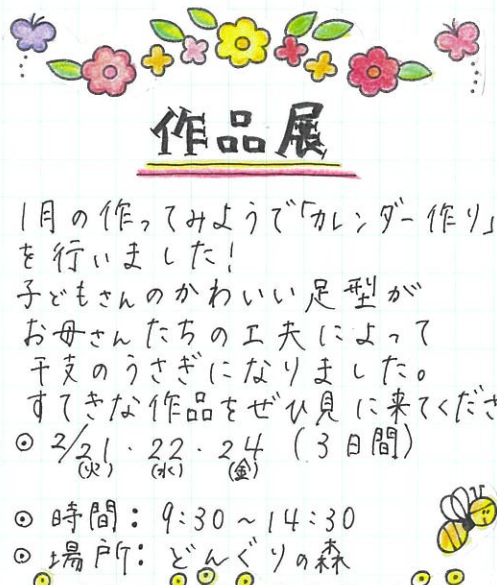 作品展
1月の作ってみようで「カレンダー作り」
を行いました!
子どもさんのかわいい足型が
お母さんたちの工夫によって
干支のうさぎになりました。
すてきな作品をぜひ見に来てくださ
◎ 2/21・22・24 (3日間)
(火) (水) (金)
◎ 時間:9:30~14:30
◎ 場所:どんぐりの森